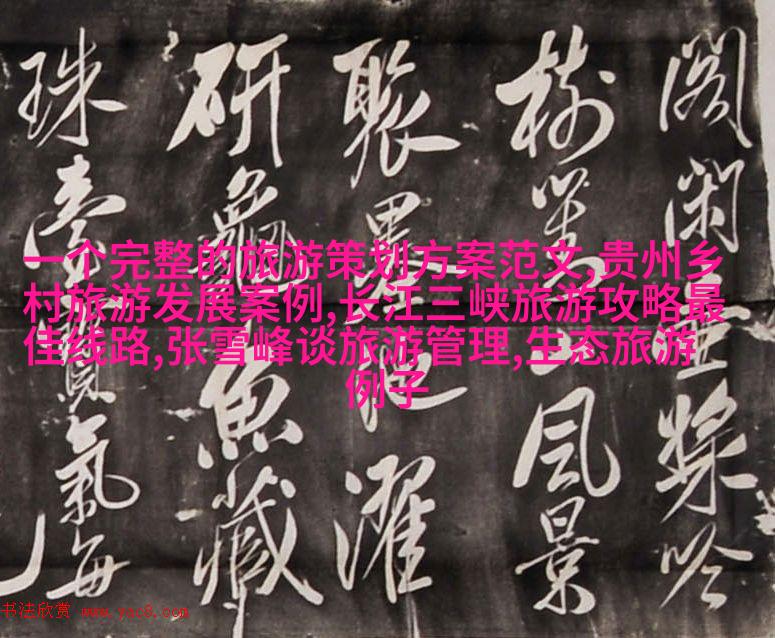 一个完整的旅游策划方案范文,贵州乡
村旅游发展案例,长江三峡旅游攻略最
佳线路,张雪峰谈旅游管理,生态旅游
例子
阁闲吟
樹风景
聚墨池濯
研魚藏
珠氣每
书法欣赏 www.yac8.com